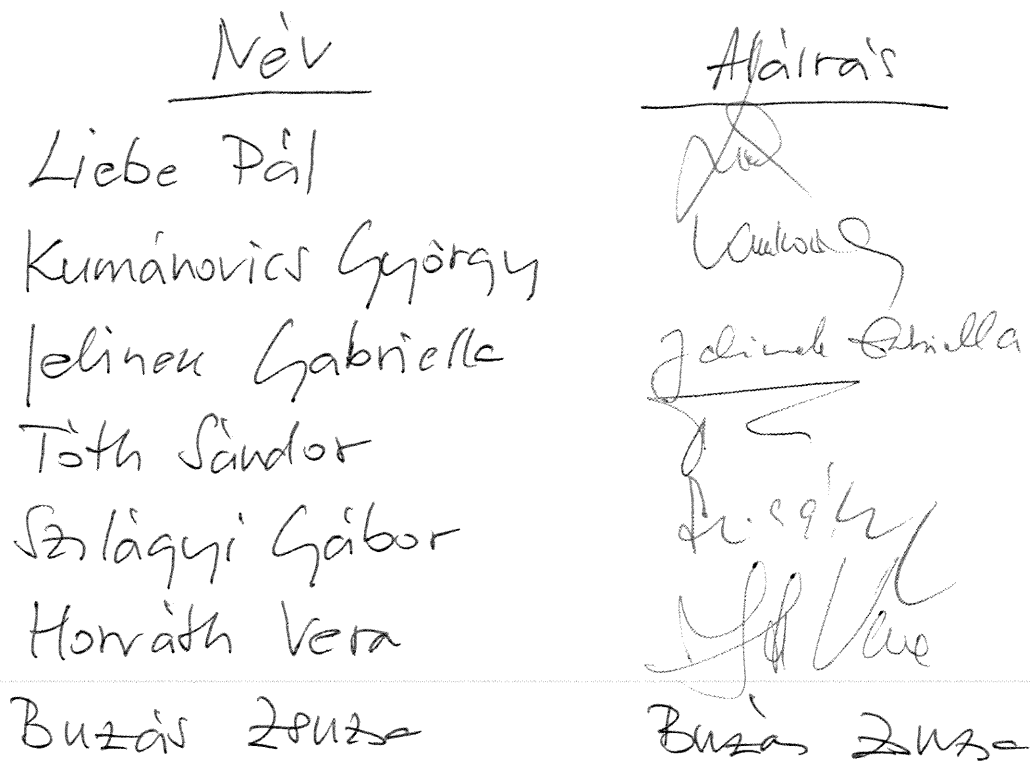 Név Aláírás
Liebe Pál
Kumánovics György
Jelinek Gabriella Jelinek Gabriella
Tóth Sándor
Szilágyi Gábor
Horváth Vera Vera
Buzás Zsuzsa Buzás Zsuzsa